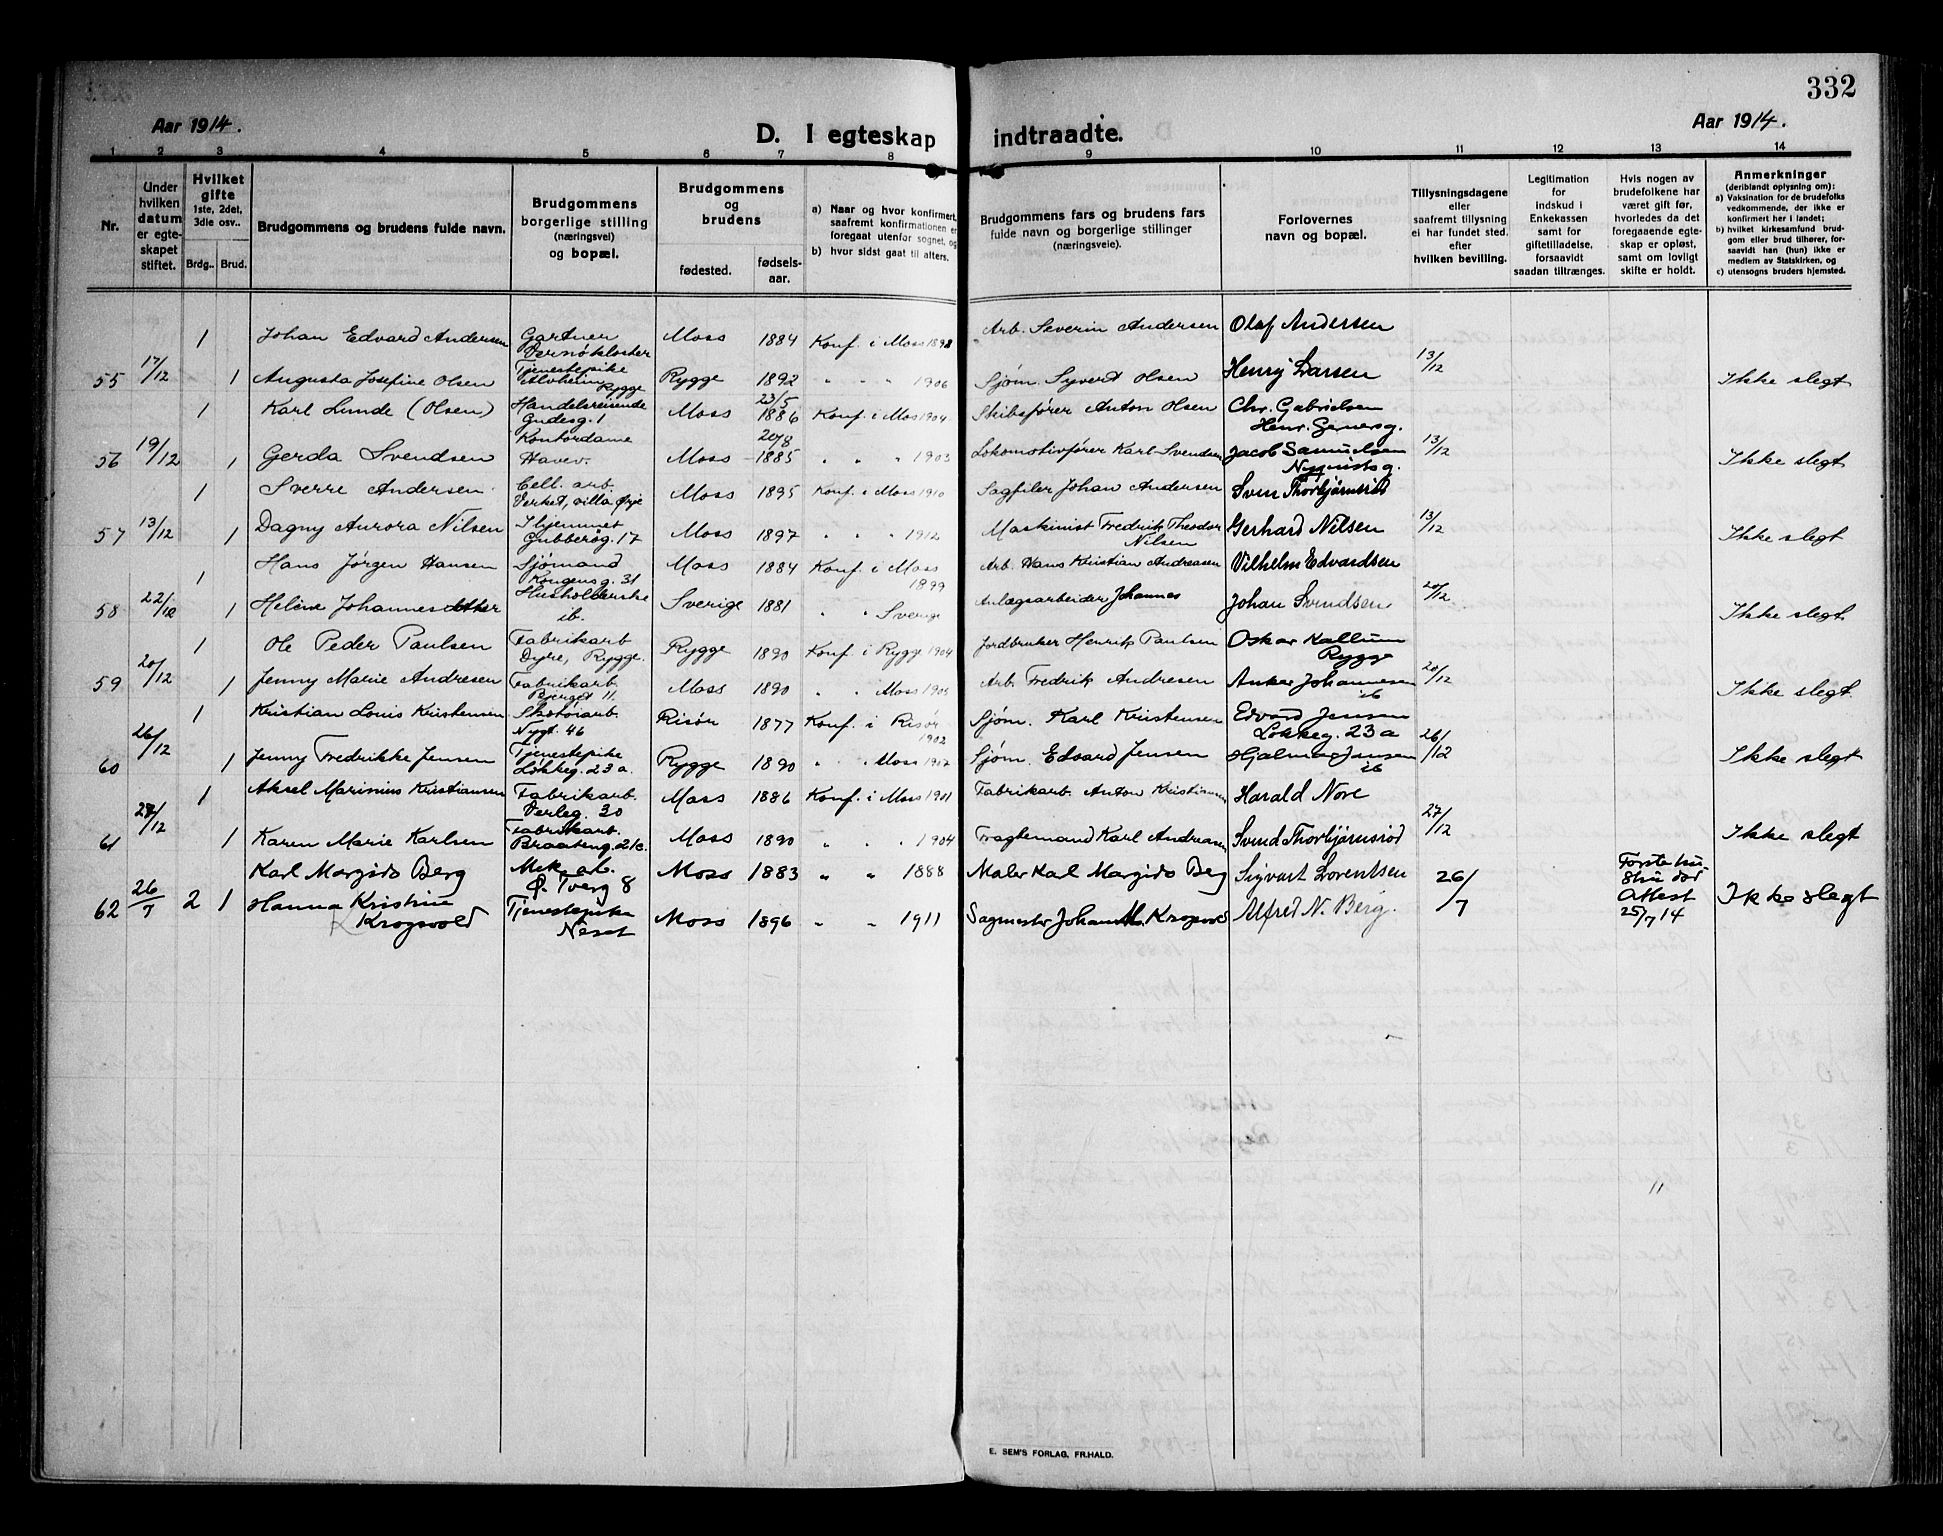 332
Aar 1914.
D. I egteskap indtraadte.
Aar 1914.
1 2 3 4 5 6 7 8 9 10 11 12 13 14
Nr.
Under hvilken datum er egteskapet stiftet.
Hvilket gifte 1ste, 2det, 3die osv..
Brdg.. Brud.
Brudgommens og brudens fulde navn.
Brudgommens borgerlige stilling (næringsvei) og bopæl.
Brudgommens og brudens
fødested. fødselsaar.
a) Naar og hvor konfirmert, saafremt konfirmationen er foregaat utenfor sognet, og
b) hvor sidst gaat til alters.
Brudgommens fars og brudens fars fulde navn og borgerlige stillinger (næringsveie).
Forlovernes navn og bopæl.
Tillysningsdagene eller saafremt tillysning ei har fundet sted, efter hvilken bevilling.
Legitimation for indskud i Enkekassen samt for giftetilladelse, forsaavidt saadan tiltrænges.
Hvis nogen av brudefolkene har været gift før, hvorledes da det foregaaende egteskap er opløst, samt om lovligt skifte er holdt.
Anmerkninger (deriblandt oplysning om):
a) Vaksination for de brudefolks vedkommende, der ikke er konfirmert her i landet;
b) hvilket kirkesamfund brudgom eller brud tilhører, forsaavidt han (hun) ikke er medlem av Statskirken, og
c) utensogns bruders hjemsted.
1 Johan Edvard Andersen Gartner Vernøkloster Moss 1884 Konf. i Moss 1898 Arb. Severin Andersen Olaf Andersen
55 17/12 1 Augusta Josefine Olsen Tjenestepike Alvheim Rygge Rygge 1892 " " " 1906 Sjøm. Syvert Olsen Henry Larsen 13/12 Ikke slegt
1 Karl Lunde (Olsen) Handelsreisende Gudesg. 1 Moss 23/5 1886 Konf. i Moss 1904 Skibsfører Anton Olsen Chr. Gabrielsen Henr. Gernersg.
56 19/12 1 Gerda Svendsen Kontordame Havev. Moss 20/8 1885 " " " 1903 Lokomotivfører Karl Svendsen Jacob Samuelsen Nyquistsg. 13/12 Ikke slegt
1 Sverre Andersen Cell. arb. Verket, villa Ørje Moss 1895 Konf. i Moss 1910 Sagfiler Johan Andersen Sven Thorbjørnsrød
57 13/12 1 Dagny Aurora Nilsen I hjemmet Gubberøg. 17 Moss 1897 " " " 1912 Maskinist Fredrik Theodor Nilsen Gerhard Nilsen 13/12 Ikke slegt
1 Hans Jørgen Hansen Sjømand Kongensg. 31 Moss 1884 Konf. i Moss 1899 Arb. Hans Kristian Andreasen Vilhelm Edvardsen
58 22/12 1 Helene Johannesdatter Husholderske ib. Sverige 1881 " " Sverige Anlægsarbeider Johannes Johan Svendsen 20/12 Ikke slegt
1 Ole Peder Paulsen Fabrikarb Dyre, Rygge. Rygge 1890 Konf. i Rygge 1904 Jordbruker Henrik Paulsen Oskar Kallum Rygge
59 20/12 1 Jenny Marie Andresen Fabrikarb. Bjerget 11 Moss 1890 " " Moss 1905 Arb. Fredrik Andresen Anker Johannesen ib 20/12 Ikke slegt.
1 Kristian Louis Kristensen Skotøiarb. Nygt. 46 Risør 1877 Konf. i Risør 1902 Sjøm. Karl Kristensen Edvard Jensen Løkkeg. 23 a
60 26/12 1 Jenny Fredrikke Jensen Tjenestepike Løkkeg. 23 a. Rygge 1890 " " Moss 1907 Sjøm. Edvard Jensen Hjalmar Jensen ib 26/12 Ikke slegt
1 Aksel Marinius Kristiansen Fabrikarb. Verleg. 30 Moss 1886 Konf. i Moss 1901 Fabrikarb. Anton Kristiansen Harald Nore
61 27/12 1 Karen Marie Karlsen Fabrikarb. Braateng. 2 c. Moss 1890 " " " 1904 Fragtemand Karl Andreasen Svend Thorbjørnsrød 27/12 Ikke slegt
Karl Margido Berg Mek. arb. Ø. Tverg 8 Moss 1883 " " 1888 Maler Karl Margido Berg Sigvart Lorentsen
62 26/7 2 1 Hanna Kristine Krogsvold Tjenestepike Neset Moss 1896 " " 1911 Sagmester Johan M. Krogsvold Alfred N. Berg. 26/7 Første hustru død Attest 25/7 14 Ikke slegt
E. SEM'S FORLAG, FR.HALD.